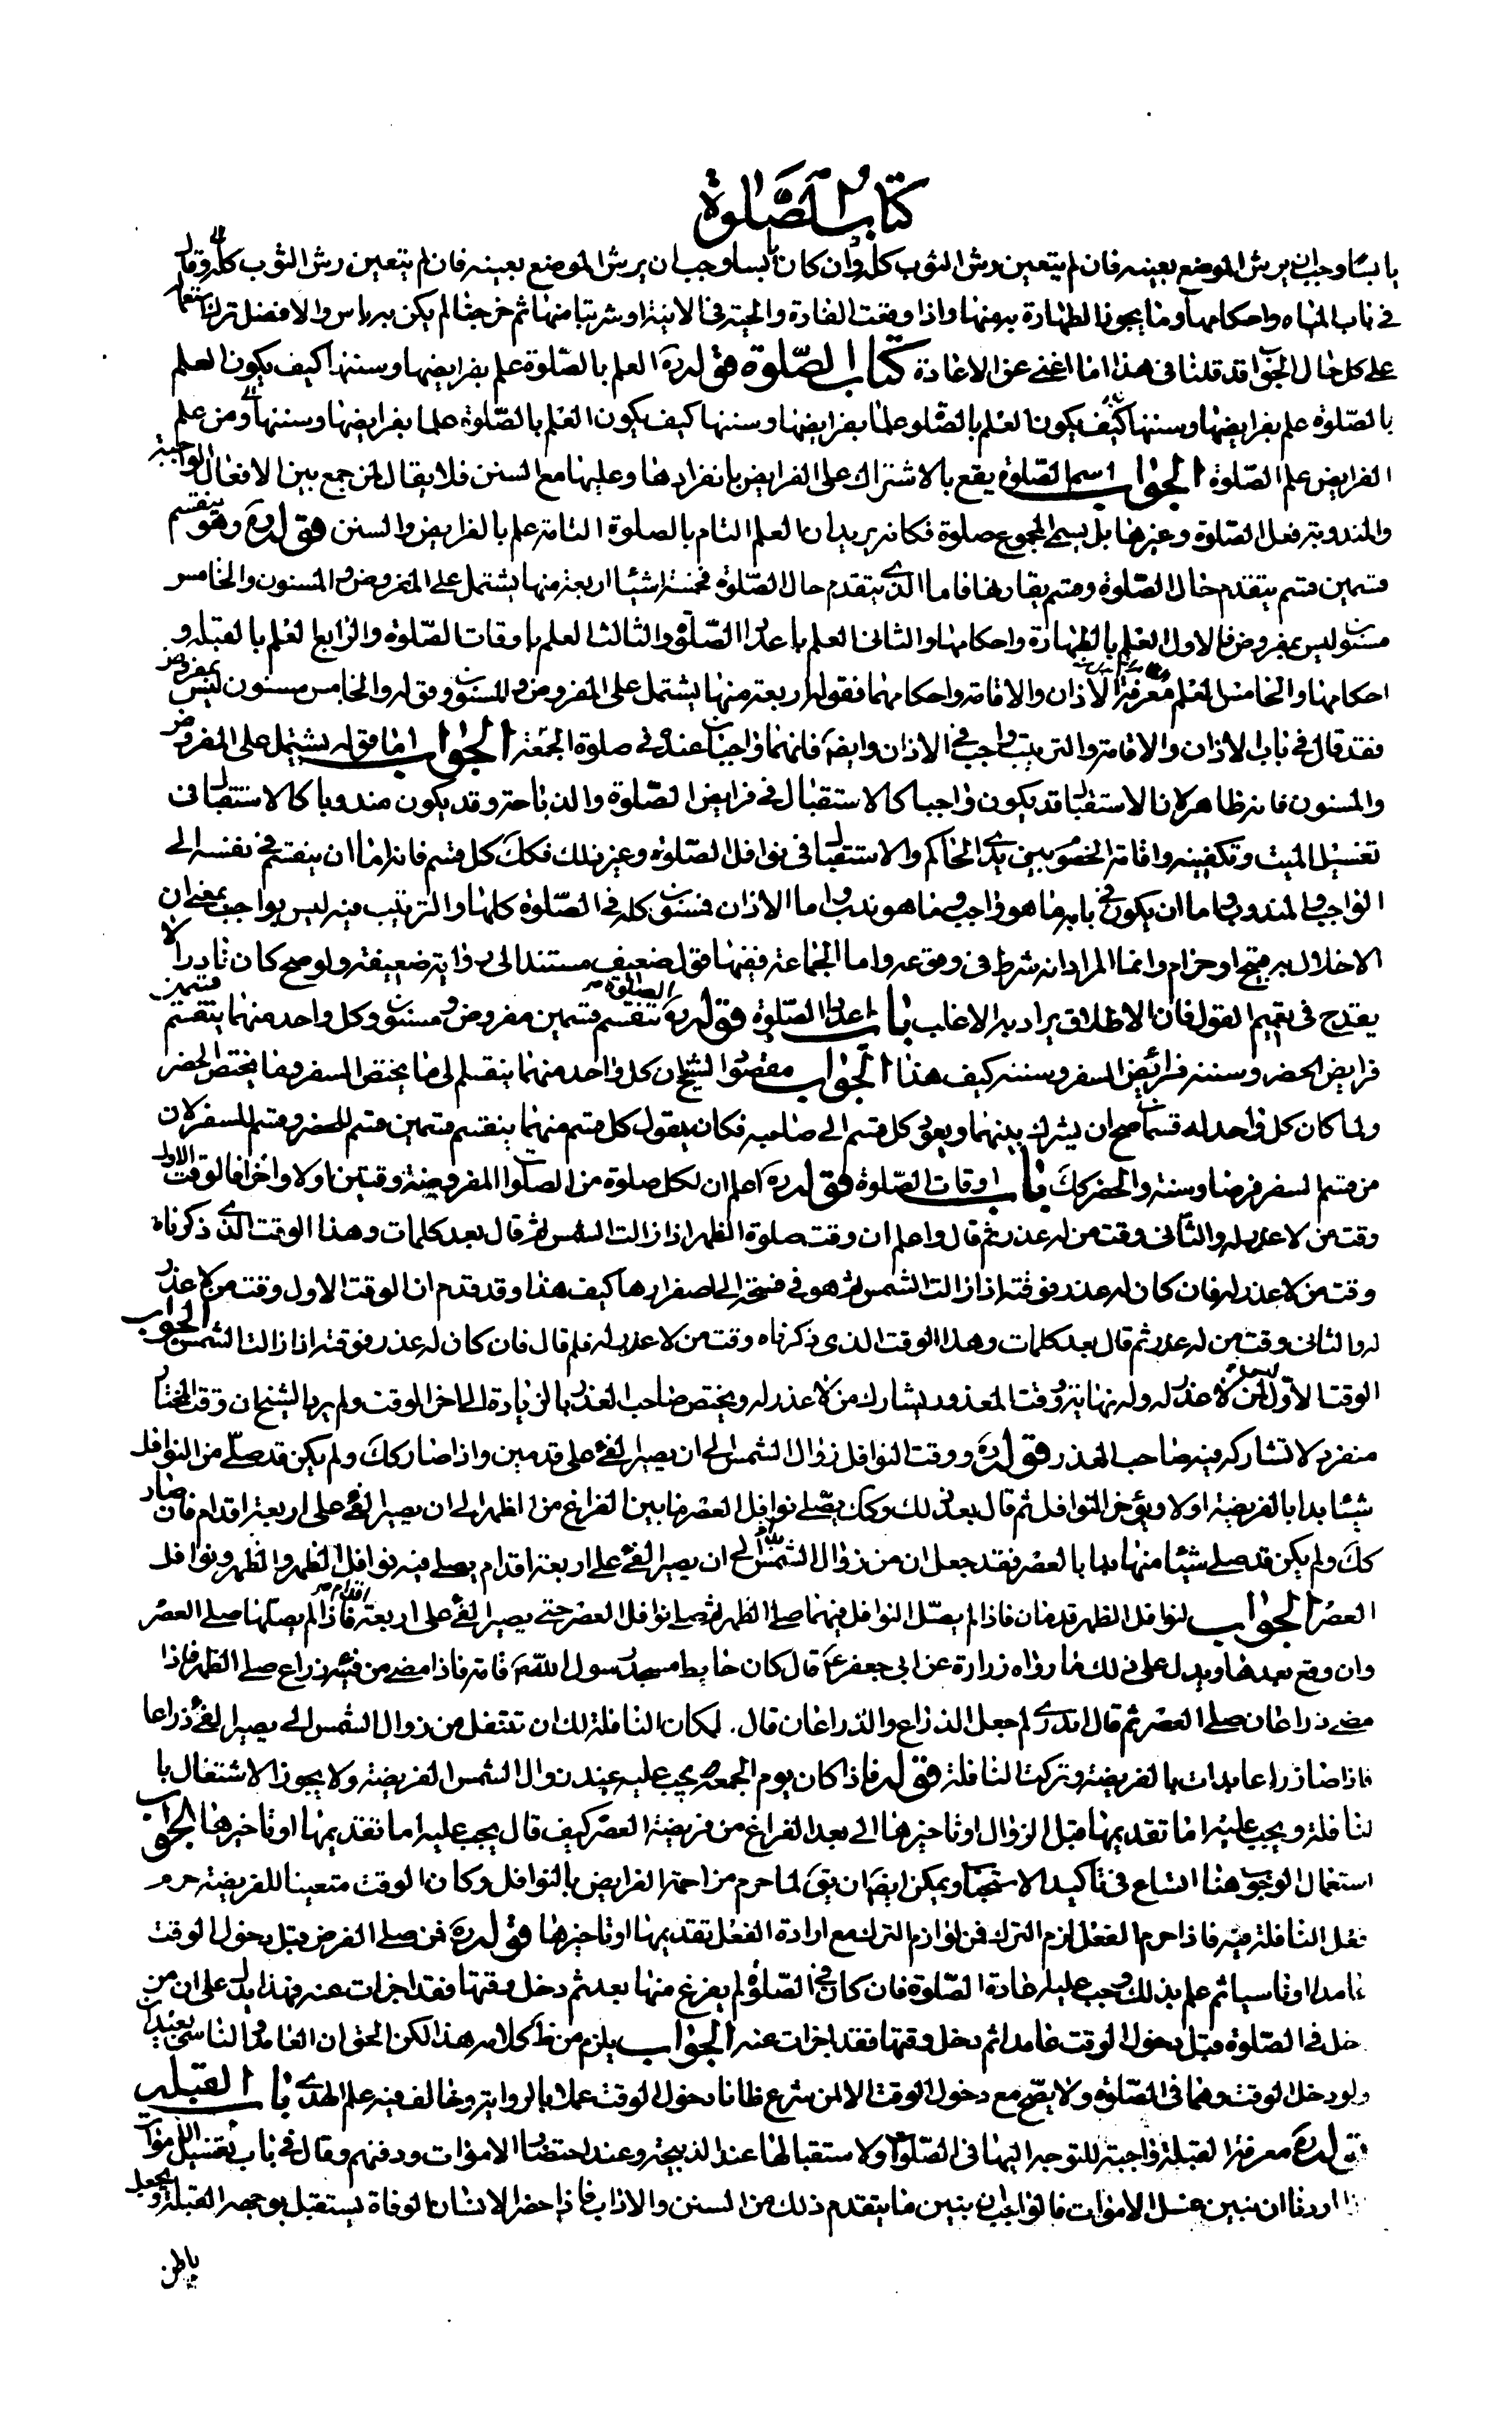 كتاب الصّلوة
يابسًا وجب ان يرش الموضع بعينه فان لم يتعين رش الثوب كله وان كان يابسا وجب ان يرش الموضع بعينه فان لم يتعين رش الثوب كله وقال
في باب المياه واحكامها وما يجوز الطهارة به منها واذا وقعت الفارة والحية في الانية او شربتا منها ثم خرجتا لم يكن به باس والافضل ترك استعماله
على كل حال الجواب قد قلنا في هذا ما اغنى عن الاعادة كتاب الصّلوة قوله ره العلم بالصّلوة علم بفرايضها وسننها كيف يكون العلم
بالصّلوة علم بفرايضها وسننها كيف يكون العلم بالصّلوة علما بفرايضها وسننها كيف يكون العلم بالصّلوة علما بفرايضها وسننها ومن علم
الفرايض علم الصّلوة الجواب اسم الصّلوة يقع بالاشتراك على الفرايض بانفرادها وعليها مع السنن فلا يقال لمن جمع بين الافعال الواجبة
والمندوبة فعل الصّلوة وغيرها بل يسمى المجموع صلوة فكانه يريد ان العلم التام بالصلوة التامة علم بالفرايض والسنن قوله ره وهو ينقسم
قسمين قسم يتقدم حال الصّلوة وقسم يقارنها فاما الذي يتقدم حال الصّلوة فخمسة اشيئا اربعة منها يشتمل على المفروض والمسنون والخامس
مسنون ليس بمفروض فالاول العلم بالطهارة واحكامها والثاني العلم باعداد الصّلوة والثالث العلم باوقات الصّلوة والرابع العلم بالقبلة و
احكامها والخامس العلم معرفة الاذان والاقامة واحكامهما فقوله اربعة منها يشتمل على المفروض والمسنون وقوله والخامس مسنون ليس بمفروض
فقد قال في باب الاذان والاقامة والترتيب واجب في الاذان وايضا فانهما واجبان عنده في صلوة الجمعة الجواب اما قوله يشتمل على المفروض
والمسنون فانه ظاهر لان الاستقبال قد يكون واجبا كالاستقبال في فرايض الصّلوة والذباحة وقد يكون مندوبا كالاستقبال في
تغسيل الميت وتكفينه واقامة الخصوم بين يدي الحاكم والاستقبال في نوافل الصّلوة وغير ذلك فكك كل قسم فانه اما ان ينقسم في نفسه الى
الواجب والمندوب واما ان يكون في بابه ما هو واجب وما هو ندب واما الاذان فمسنون كله في الصّلوة كلها والترتيب فيه ليس بواجب بمعنى ان
الاخلال به قبيح او حرام وانما المراد انه شرط في وقوعه واما الجماعة ففيها قول ضعيف مستند الى رواية ضعيفة ولو صح كان نادرا لا
يقدح في تعميم القول فان الاطلاق يراد به الاغلب باب اعداد الصّلوة قوله ره الصلوة تنقسم قسمين مفروض ومسنون وكل واحد منهما ينقسم قسمين
فرايض الحضر وسننه فرائض السفر وسننه كيف هذا الجواب مقصود الشيخ ان كل واحد منهما ينقسم الى ما يختص السفر وما يختص الحضر
ولما كان كل واحد له قسمان صح ان يشرك بينهما ويعزى كل قسم الى صاحبه فكان يقول كل قسم منهما ينقسم قسمين قسم للحضر وقسم للسفر لان
من قسم السفر فرضا وسنة والحضر كك باب اوقات الصّلوة قوله ره اعلم ان لكل صلوة من الصلوات المفروضة وقتين اولا واخرا فالوقت الاول
وقت من لا عذر له والثاني وقت من له عذر ثم قال واعلم ان وقت صلوة الظهر اذا زالت الشمس ثم قال بعد كلمات وهذا الوقت الذي ذكرناه
وقت من لا عذر له فان كان له عذر فوقته اذا زالت الشمس ثم هو في فسحة الى اصفرارها كيف هذا وقد قدم ان الوقت الاول وقت من لا عذر
له والثاني وقت من له عذر ثم قال بعد كلمات وهذا الوقت الذي ذكرناه وقت من لا عذر له فلم قال فان كان له عذر فوقته اذا زالت الشمس الجواب
الوقت الاوّل لمن لا عذر له وله نهاية ووقت المعذور يشارك من لا عذر له ويختص صاحب العذر بالزيادة الى اخر الوقت ولم يرد الشيخ ان وقت المختار
منفرد لا تشاركه فيه صاحب العذر قوله ره ووقت النوافل زوال الشمس الى ان يصير الفئ على قدمين واذا صار كك ولم يكن قد صلّى من النوافل
شيئا بدا بالفريضة اولا ويؤخر النوافل ثم قال بعد ذلك وكك يصّلى نوافل العصر ما بين الفراغ من الظهر الى ان يصير الفئ على اربعة اقدام فان صار
كك ولم يكن قد صلى شيئا منها بدا بالعصر فقد جعل ان من زوال الشمس الى ان يصير الفئ على اربعة اقدام يصلى فيه نوافل الظهر والظهر ونوافل
العصر الجواب لنوافل الظهر قدمان فاذا لم يصّل النوافل فيهما صلى الظهر ثم يصلى نوافل العصر حتى يصير الفئ على اربعة اقدام فاذا لم يصلّها صلى العصر
وان وقع بعدها ويدل على ذلك ما رواه زرارة عن ابي جعفر ع قال كان حايط مسجد رسول الله ص قامة فاذا مضى من فيئه ذراع صلى الظهر فاذا
مضى ذراعان صلى العصر ثم قال اتدرى لم جعل الذراع والذراعان قال. لمكان النافلة لك ان تنتفل من زوال الشمس الى يصير الفئ ذراعا
فاذا صار ذراعا بدات بالفريضة وتركت النافلة قوله فاذا كان يوم الجمعة يجب عليه عند زوال الشمس الفريضة ولا يجوز الاشتغال با
لنافلة ويجب عليه اما تقديمها قبل الزوال او تاخيرها الى بعد الفراغ من فريضة العصر كيف قال يجب عليه اما تقديمها او تاخيرها الجواب
استعمال الوجوب هنا اتساع في تاكيد الاستحباب ويمكن ايضا ان يق لما حرم مزاحمة الفرايض بالنوافل وكان الوقت متعينا للفريضة حرم
فعل النافلة فيه فاذا حرم الفعل لزم الترك فمن لوازم الترك مع ارادة الفعل تقديمها او تاخيرها قوله ره فمن صلى الفرض قبل دخول الوقت
عامدا او ناسيا ثم علم بذلك وجب عليه اعادة الصّلوة فان كان في الصّلوة لم يفرغ منها بعد ثم دخل وقتها فقد اجزات عنه فهذا يدل على ان من
دخل في الصّلوة قبل دخول الوقت عامدا ثم دخل وقتها فقد اجزات عنه الجواب يلزم من ظ كلامه هذا لكن الحق ان العامد والناسي يعيدان
ولو دخل الوقت وهما في الصّلوة ولا يصّح مع دخول الوقت الا لمن شرع ظانا دخول الوقت عملا بالرواية وخالف فيه علم الهدى باب القبلة
قوله ره معرفة القبلة واجبة للتوجه اليها في الصّلوات ولاستقبالها عند الذبيحة وعند احتضار الاموات ودفنهم وقال في باب تغسيل الاموات
اذا اردنا ان نبين غسل الاموات فالواجب ان نبين ما يتقدم ذلك من السنن والاداب فاذا حضر الانسان الوفاة يستقبل بوجهه القبلة ويجعل
باطن